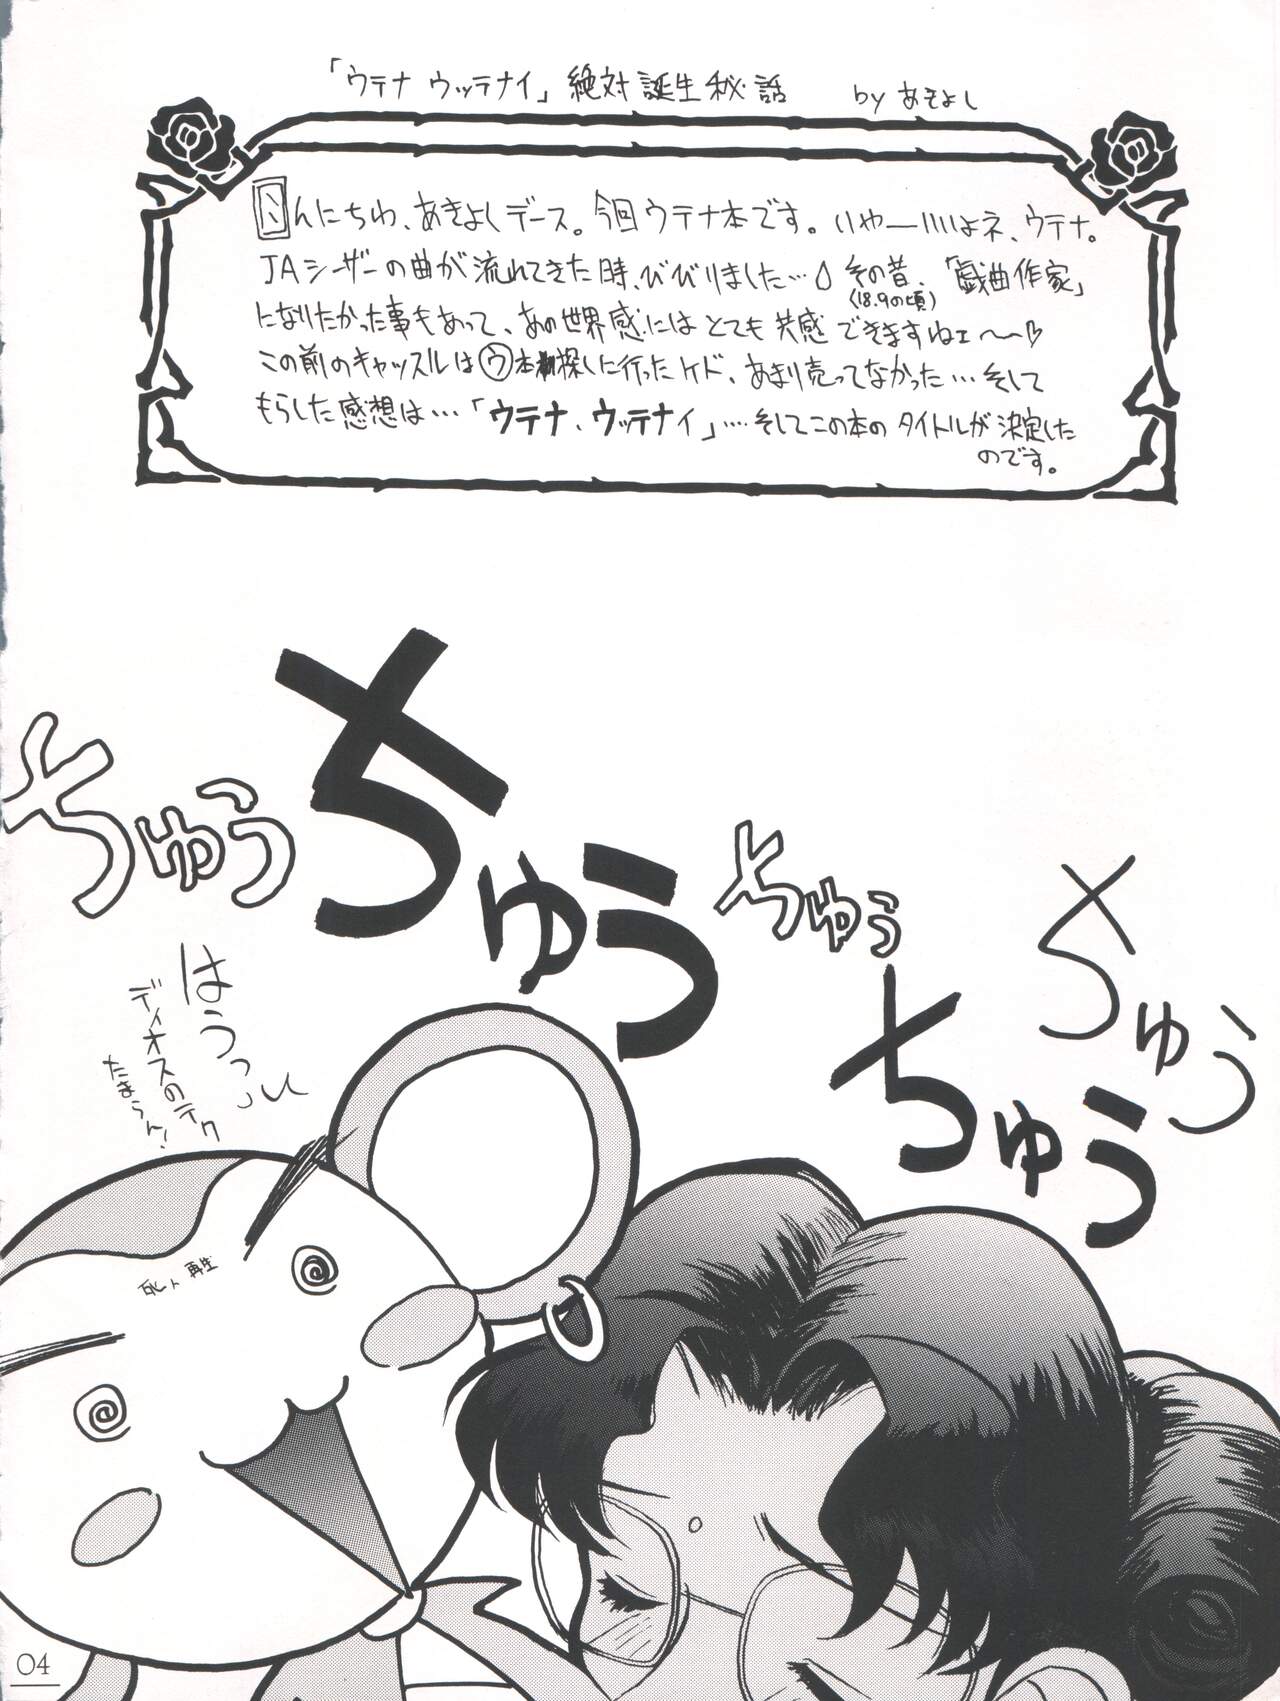 「ウテナ ウッテナイ」絶対誕生秘話 by あきよし
こんにちわ、あきよしデース。今回ウテナ本です。いやーいいよネ、ウテナ。
JAシーザーの曲が流れてきた時、びびりました…その昔、「戯曲作家」
(18.9の頃)
になりたかった事もあって、あの世界感にはとても共感できますねェ〜♡
この前のキャッスルはウ本探しに行ったケド、あまり売ってなかった…そして
もらした感想は…「ウテナ、ウッテナイ」…そしてこの本のタイトルが決定した
のです。
ちゅう
ちゅう
ちゅう
ちゅう
ちゅう
はうっ
ディオスのテク
たまらん!
死ト再生
04